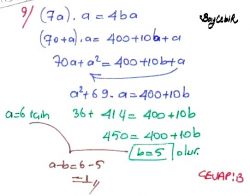 9/ (7a).a = 4ba
Bay Cebir
(70+a).a = 400+10b+a
70a+a² = 400+10b+a
a²+69.a = 400+10b
a=6 için 36+414 = 400+10b
450 = 400+10b
b=5 olur.
a-b=6-5
=1
CEVAP:B